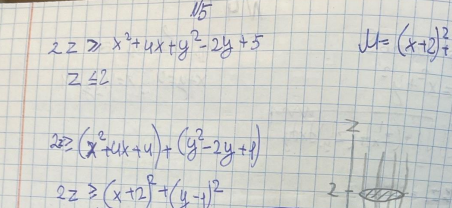 №5
2z ≥ x²+4x+y²-2y+5
z ≤ 2
μ = (x+2)²+
2z ≥ (x²+4x+4)+(y²-2y+1)
2z ≥ (x+2)²+(y-1)²
z
2